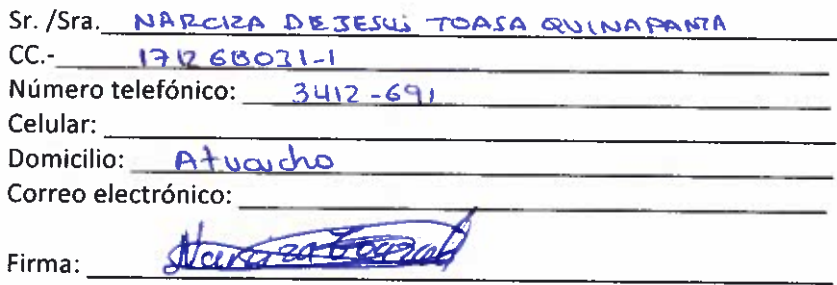 Sr. /Sra. NARCIZA DE JESUS TOASA QUINAPANTA
CC.- 171268031-1
Número telefónico: 3412-691
Celular:
Domicilio: Atucucho
Correo electrónico:
Firma: Narciza Toasa